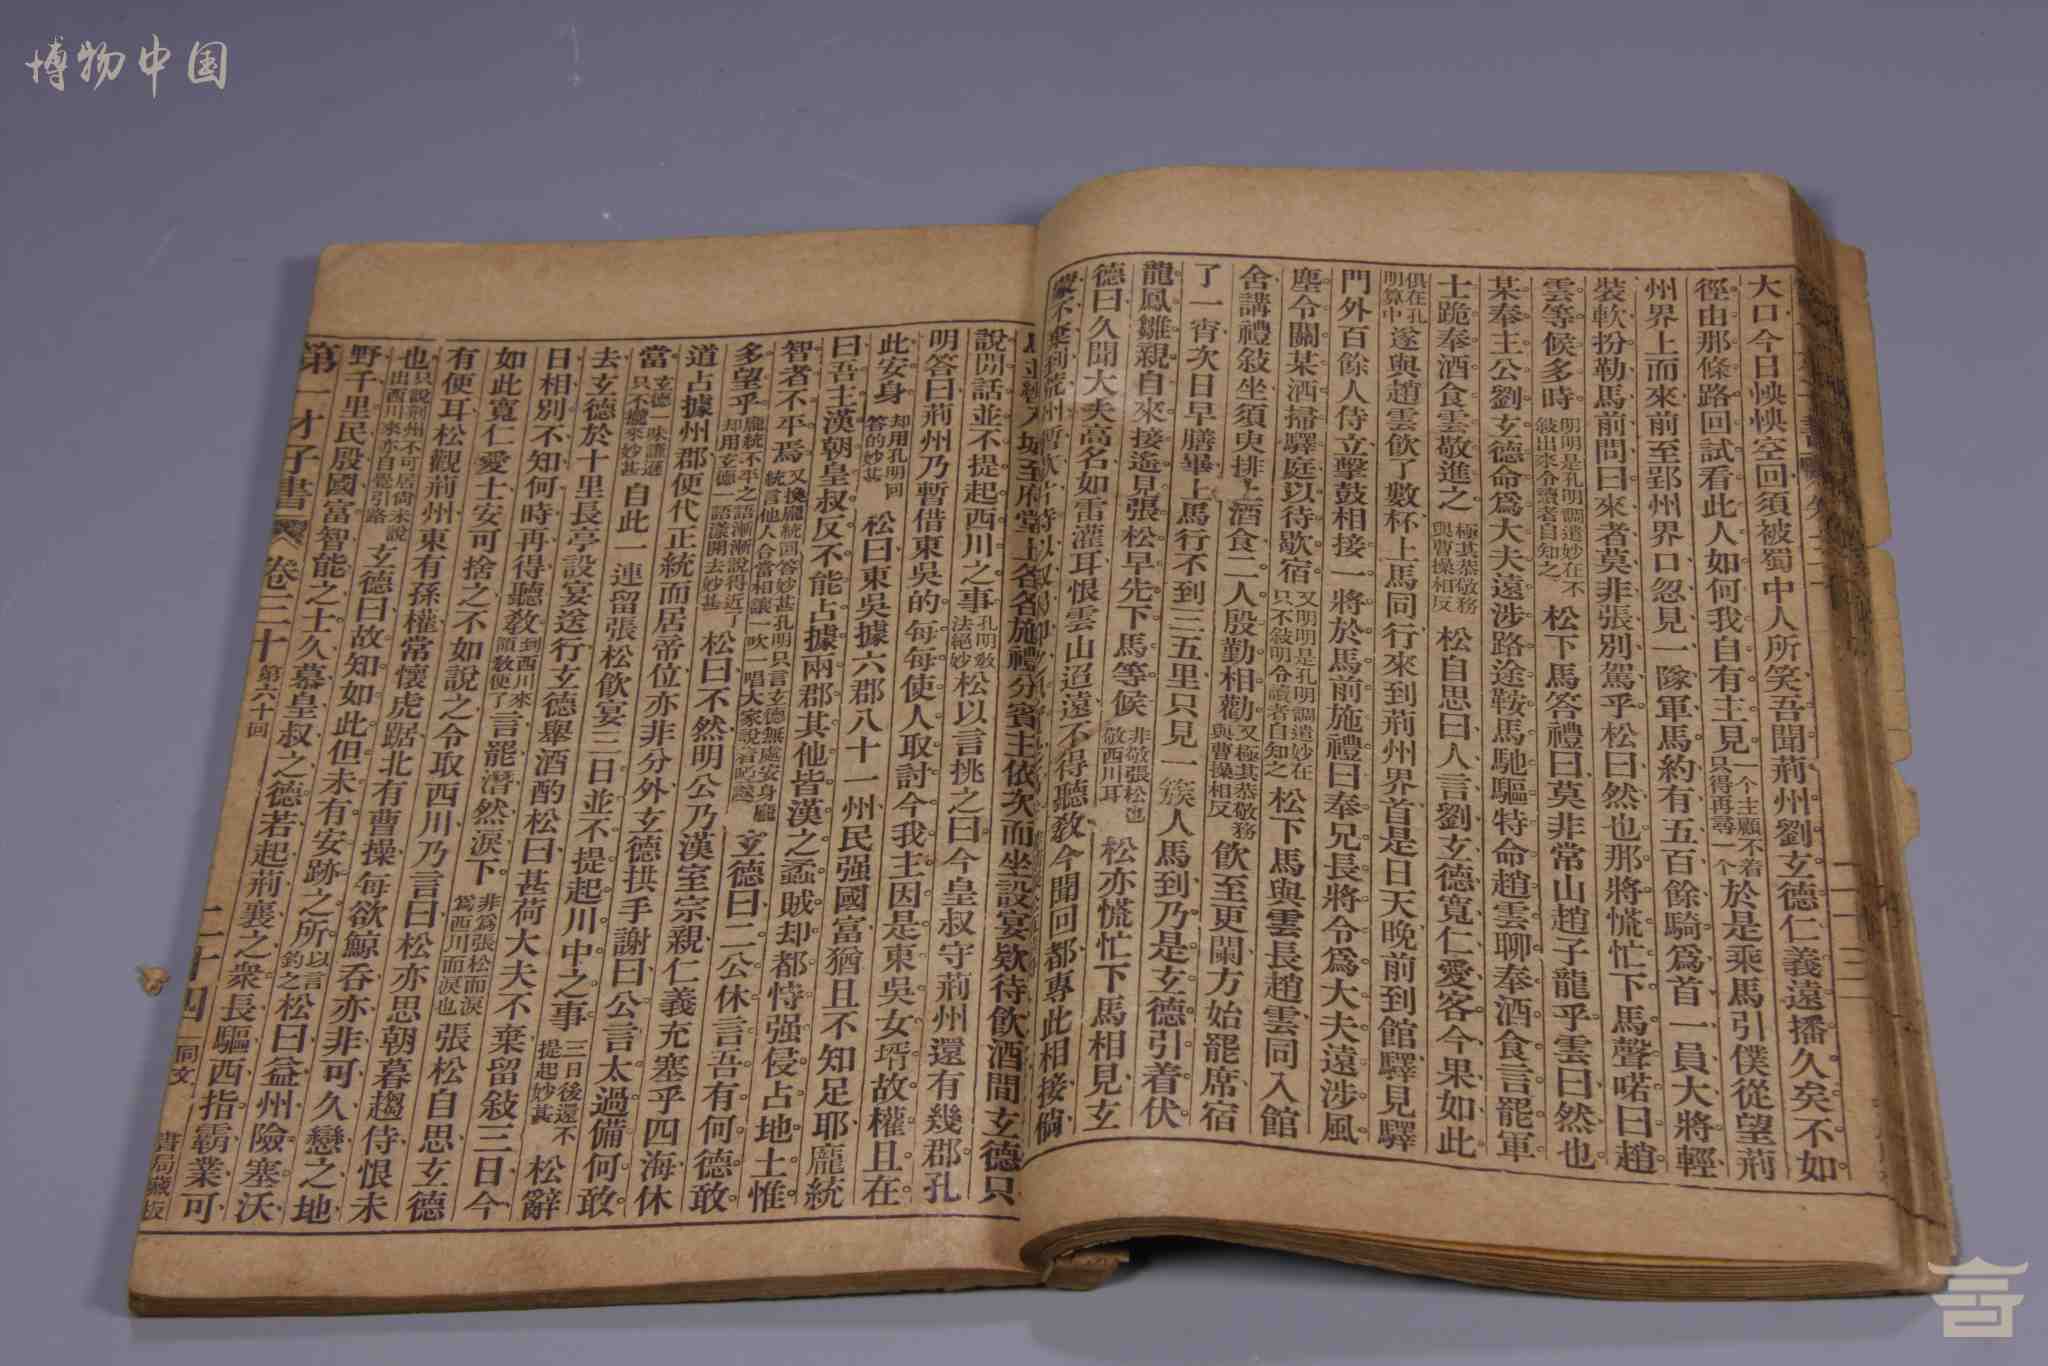 博物中国
大口今日怏怏空回須被蜀中人所笑吾聞荊州劉玄德仁義遠播久矣不如
徑由那條路回試看此人如何我自有主見一个主顧不着只得再尋一个於是乘馬引僕從望荊
州界上而來前至郢州界口忽見一隊軍馬約有五百餘騎爲首一員大將輕
裝軟扮勒馬前問曰來者莫非張別駕乎松曰然也那將慌忙下馬聲喏曰趙
雲等候多時明明是孔明調遣妙在不敍出來令讀者自知之松下馬答禮曰莫非常山趙子龍乎雲曰然也
某奉主公劉玄德命爲大夫遠涉路途鞍馬馳驅特命趙雲聊奉酒食言罷軍
士跪奉酒食雲敬進之極其恭敬務與曹操相反松自思曰人言劉玄德寬仁愛客今果如此
俱在孔明算中遂與趙雲飲了數杯上馬同行來到荊州界首是日天晚前到館驛見驛
門外百餘人侍立擊鼓相接一將於馬前施禮曰奉兄長將令爲大夫遠涉風
塵令關某洒掃驛庭以待歇宿又明明是孔明調遣妙在只不敍明令讀者自知之松下馬與雲長趙雲同入館
舍講禮敍坐須臾排上酒食二人殷勤相勸又極其恭敬務與曹操相反飲至更闌方始罷席宿
了一宵次日早膳畢上馬行不到三五里只見一簇人馬到乃是玄德引着伏
龍鳳雛親自來接遙見張松早先下馬等候非敬張松也敬西川耳松亦慌忙下馬相見玄
德曰久聞大夫高名如雷灌耳恨雲山迢遠不得聽敎今聞回都專此相接倘
蒙不棄到荒州暫歇片
入城至府堂上各各施禮分賓主依次而坐設宴欵待飲酒間玄德只
說閒話並不提起西川之事孔明敎法絕妙松以言挑之曰今皇叔守荊州還有幾郡孔
明答曰荊州乃暫借東吳的每每使人取討今我主因是東吳女壻故權且在
此安身却用孔明回答的妙甚松曰東吳據六郡八十一州民强國富猶且不知足耶龐統
曰吾主漢朝皇叔反不能占據兩郡其他皆漢之蟊賊却都恃强侵占地土惟
智者不平焉又換龐統回答妙甚孔明只言玄德無處安身龐統言他人合當相讓一吹一唱大家說着啞謎玄德曰二公休言吾有何德敢
多望乎龐統不平之語漸漸說得近了却用玄德一語漾開去妙甚松曰不然明公乃漢室宗親仁義充塞乎四海休
道占據州郡便代正統而居帝位亦非分外玄德拱手謝曰公言太過備何敢
當玄德一味謙遜只不攏來妙甚自此一連留張松飲宴三日並不提起川中之事三日後還不提起妙甚松辭
去玄德於十里長亭設宴送行玄德舉酒酌松曰甚荷大夫不棄留敍三日今
日相別不知何時再得聽敎到西川來領敎便了言罷潸然淚下非爲張松而淚爲西川而淚也張松自思玄德
如此寬仁愛士安可捨之不如說之令取西川乃言曰松亦思朝暮趨侍恨未
有便耳松觀荊州東有孫權常懷虎踞北有曹操每欲鯨吞亦非可久戀之地
也只說荊州不可居尙未說出西川來亦自覺引路玄德曰故知如此但未有安跡之所以言釣之松曰益州險塞沃
野千里民殷國富智能之士久慕皇叔之德若起荊襄之衆長驅西指霸業可
第一才子書 卷三十 第六十回 二十四 同文書局藏板